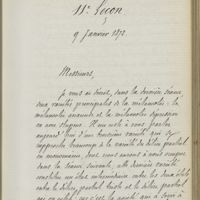 11e Leçon
9 Janvier 1872.
Messieurs,
Je vous ai décrit, dans la dernière séance,
deux variétés principales de la mélancolie : la
mélancolie anxieuse et la mélancolie dépressive
ou avec stupeur. Il me reste à vous parler
aujourd'hui d'une troisième variété qui se
rapproche beaucoup de la variété du délire partiel
ou monomanie, dont nous aurons à nous occuper
dans la séance suivante. Cette dernière variété
constitue un état intermédiaire entre les deux états
entre le délire partiel triste et le délire partiel